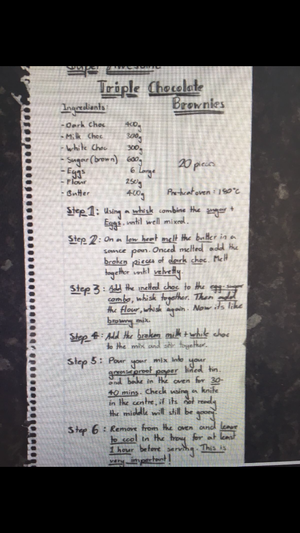 Super Awesome
Triple Chocolate
Brownies
Ingredients:
- Dark Choc 400g
- Milk Choc 300g
- White Choc 300g
- Sugar (brown) 600g
- Eggs 6 Large
- Flour 250g
- Butter 400g
20 pieces
Preheat oven: 180°C
Step 1: Using a whisk combine the sugar +
Eggs. until well mixed.
Step 2: On a low heat melt the butter in a
sauce pan. Once melted add the
broken pieces of dark choc. Melt
together until velvetty
Step 3: Add the melted choc to the egg-sugar
combo, whisk together. Then add
the flour, whisk again. Now its like
browny mix.
Step 4: Add the broken milk + white choc
to the mix and stir together.
Step 5: Pour your mix into your
greaseproof paper lined tin.
and bake in the oven for 30-
40 mins. Check using a knife
in the centre, if its not ready
the middle will still be gooey
Step 6: Remove from the oven and leave
to cool in the tray for at least
1 hour before serving. This is
very important!